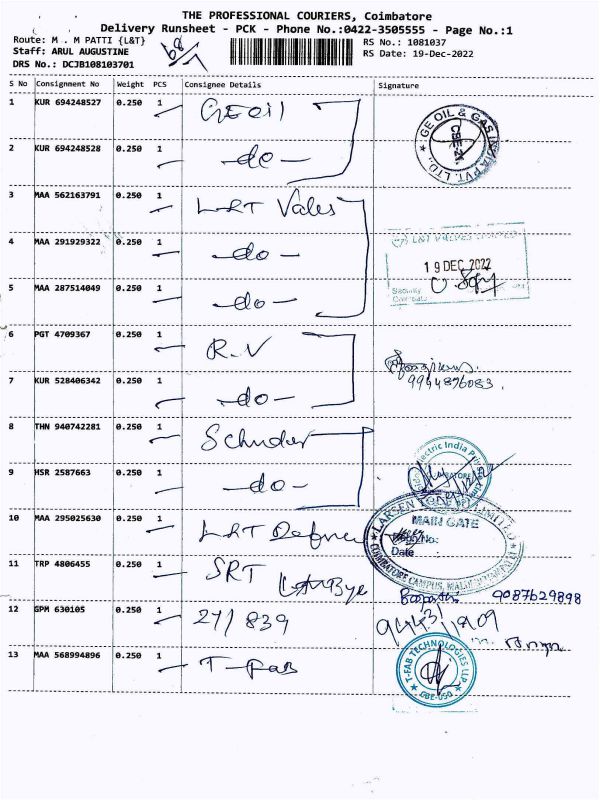 THE PROFESSIONAL COURIERS, Coimbatore
Delivery Runsheet - PCK - Phone No.:0422-3505555 - Page No.:1
Route: M . M PATTI {L&T}
RS No.: 1081037
Staff: ARUL AUGUSTINE
RS Date: 19-Dec-2022
DRS No.: DCJB108103701
S No Consignment No Weight PCS Consignee Details Signature
1 KUR 694248527 0.250 1 GE Oil
GE OIL & GAS INDIA PVT. LTD.
CBE-21.
2 KUR 694248528 0.250 1 -do-
3 MAA 562163791 0.250 1 L&T Vales
L&T VALVES LIMITED
4 MAA 291929322 0.250 1 -do-
19 DEC 2022
5 MAA 287514049 0.250 1 -do-
Security
6 PGT 4709367 0.250 1 R.V
9944876083.
7 KUR 528406342 0.250 1 -do-
8 THN 940742281 0.250 1
Electric India Priv
9 HSR 2587663 0.250 1 -do-
LARSEN & TOUBRO LIMITED
10 MAA 295025630 0.250 1 L&T Defence
MAIN GATE
Date :
COIMBATORE CAMPUS,
11 TRP 4806455 0.250 1 SRT
9087629898
12 GPM 630105 0.250 1 27/839
13 MAA 568994896 0.250 1 T-Fab
T-FAB TECHNOLOGIES LLP
CBE-050